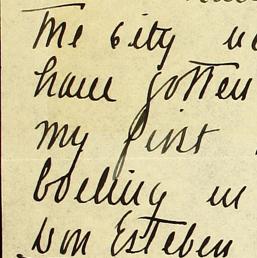 The City
have gotten
my first
boeling in
Don Esteben